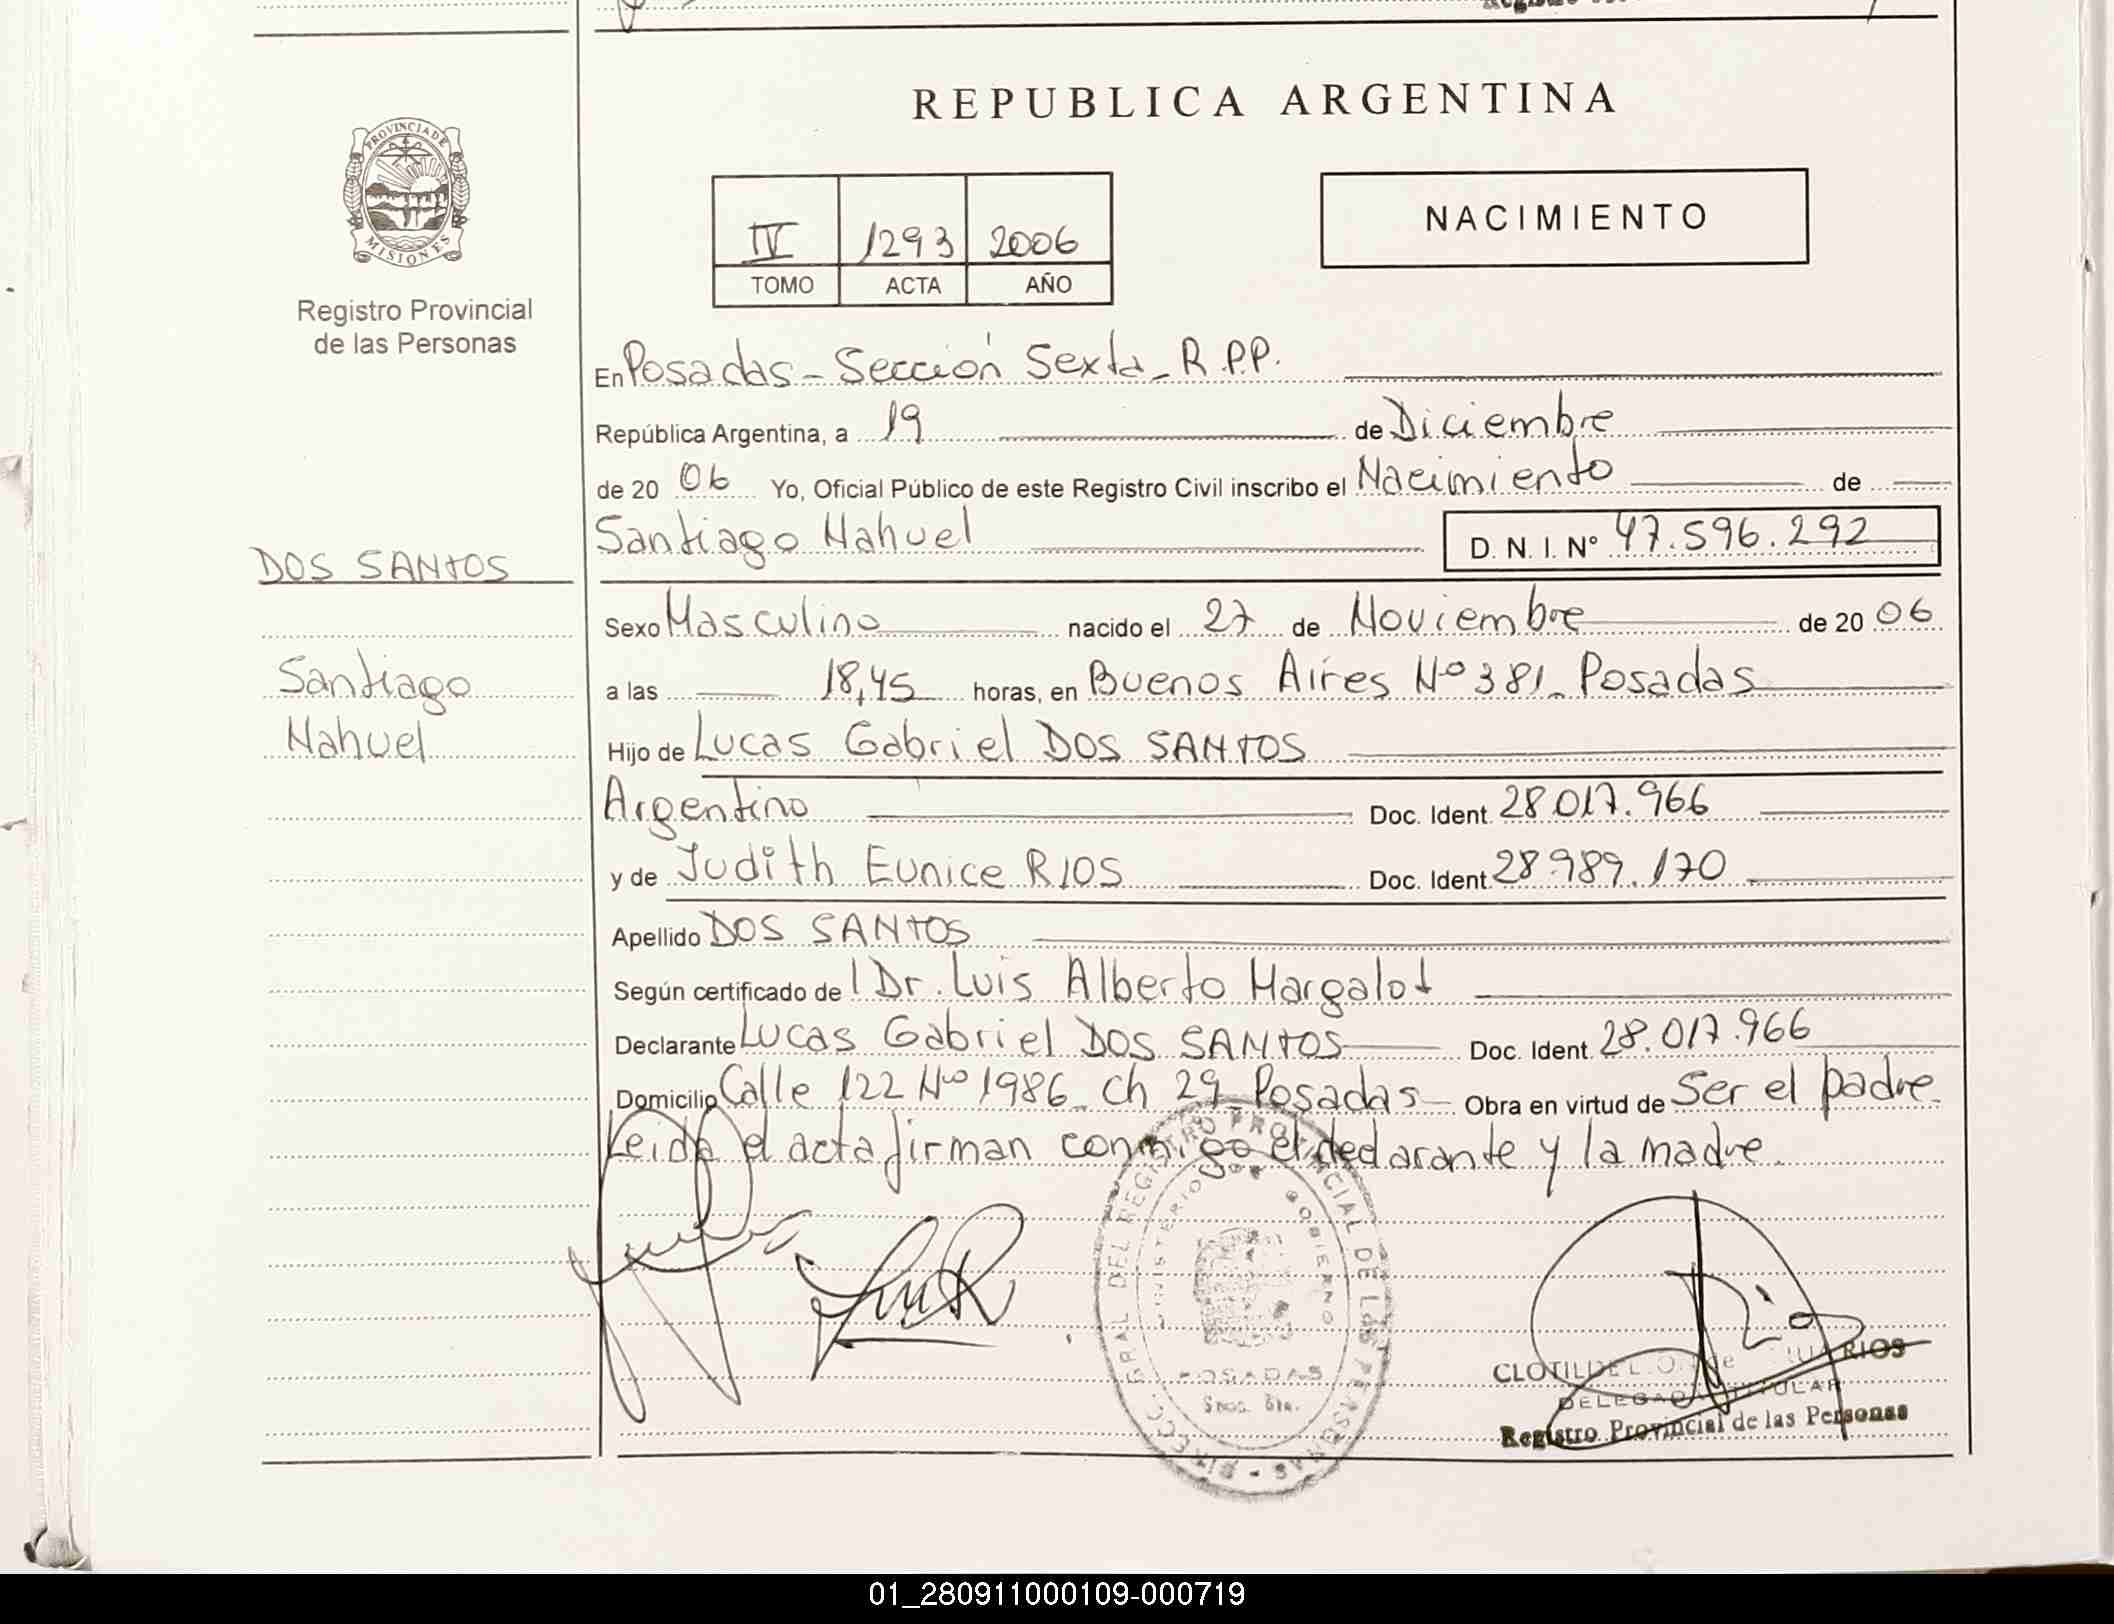 REPUBLICA ARGENTINA
PROVINCIA DE
MISIONES
Registro Provincial
de las Personas
IV 1293 2006
TOMO ACTA AÑO
NACIMIENTO
En Posadas - Sección Sexta - R.P.P.
República Argentina, a 19 de Diciembre
de 20 06 Yo, Oficial Público de este Registro Civil inscribo el Nacimiento de
Santiago Nahuel D. N. I. Nº 47.596.292
DOS SANTOS
Sexo Masculino nacido el 27 de Noviembre de 20 06
Santiago
Nahuel
a las 18,45 horas, en Buenos Aires Nº 381 - Posadas
Hijo de Lucas Gabriel DOS SANTOS
Argentino Doc. Ident. 28.017.966
y de Judith Eunice RIOS Doc. Ident. 28.989.170
Apellido DOS SANTOS
Según certificado de l Dr. Luis Alberto Margalot
Declarante Lucas Gabriel DOS SANTOS Doc. Ident. 28.017.966
Domicilio Calle 122 Nº 1986 - Ch 29 - Posadas - Obra en virtud de Ser el padre.
Leida el acta firman conmigo el declarante y la madre.
DIRECC. GRAL DEL REGISTRO PROVINCIAL DE LAS PERSONAS
MINISTERIO DE GOBIERNO
POSADAS
RIOS
DELEGADA TITULAR
Registro Provincial de las Personas
01_280911000109-000719